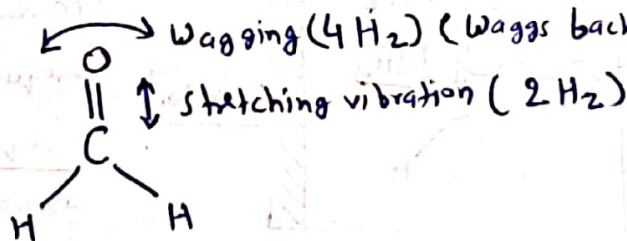 Wagging (4 Hz) (Waggs bac
O
stretching vibration ( 2 Hz)
C
H H